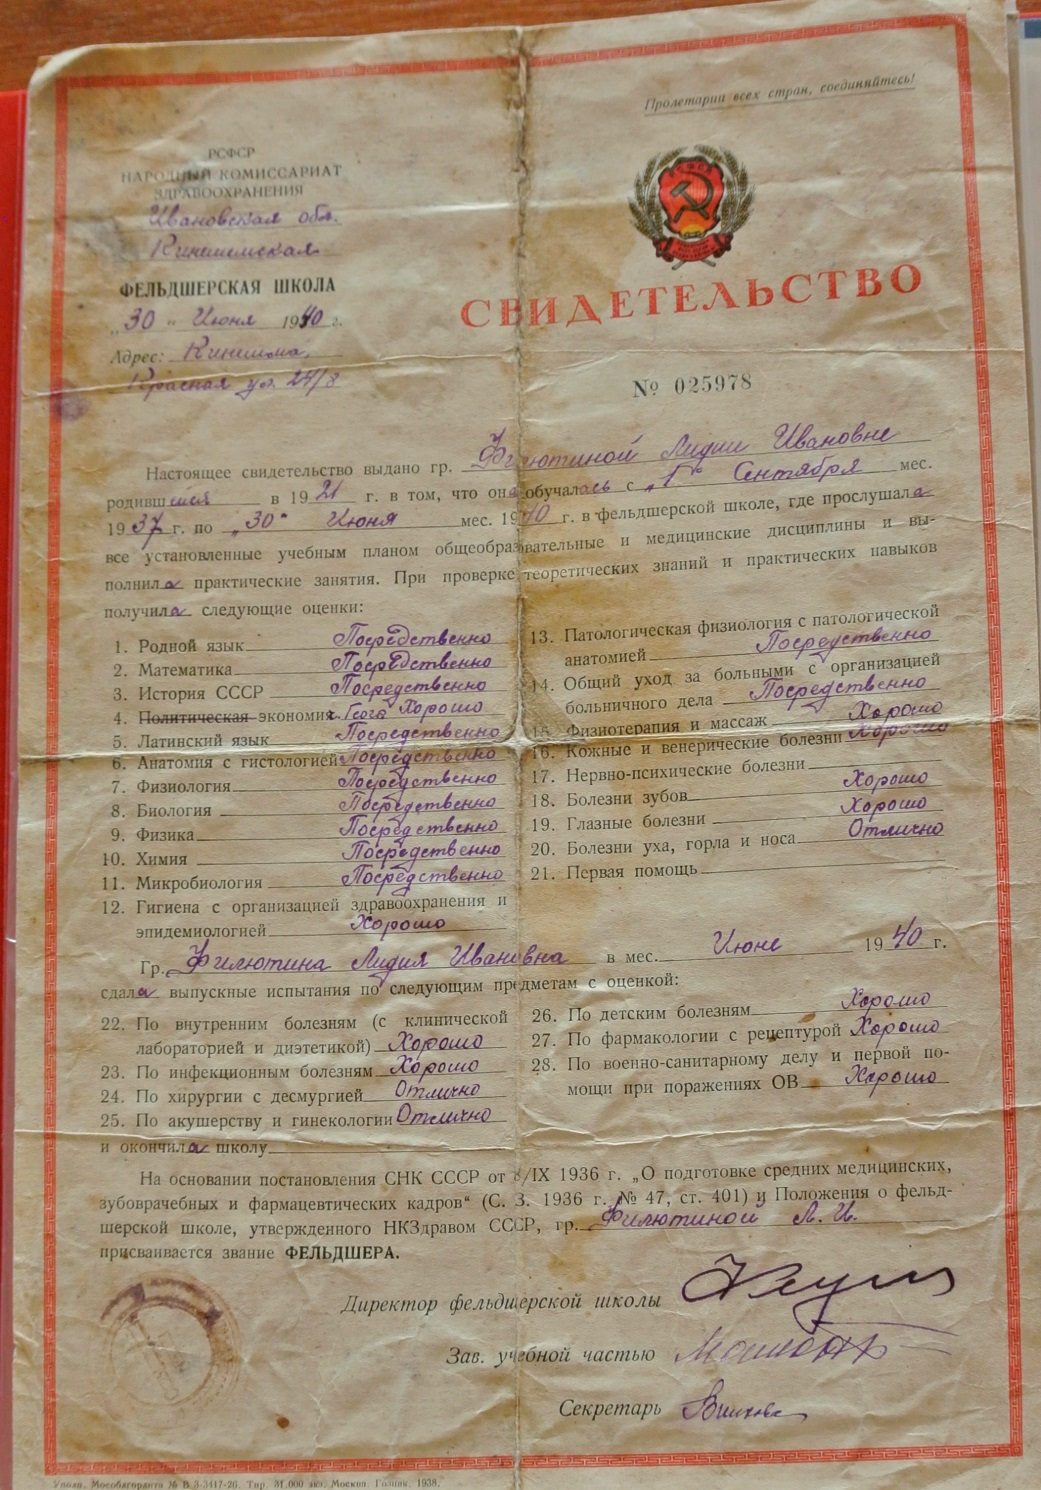 Пролетарии всех стран, соединяйтесь!
РСФСР
НАРОДНЫЙ КОМИССАРИАТ
ЗДРАВООХРАНЕНИЯ
Ивановская обл.
Кинешемская
ФЕЛЬДШЕРСКАЯ ШКОЛА
„30" Июня 1940 г.
Адрес: Кинешма,
Красная ул. 24/8
СВИДЕТЕЛЬСТВО
№ 025978
Настоящее свидетельство выдано гр. Филютиной Лидии Ивановне
родившейся в 1921 г. в том, что она обучалась с „1" Сентября мес.
1937 г. по „30" Июня мес. 1940 г. в фельдшерской школе, где прослушала
все установленные учебным планом общеобразовательные и медицинские дисциплины и вы-
полнила практические занятия. При проверке теоретических знаний и практических навыков
получила следующие оценки:
1. Родной язык Посредственно
2. Математика Посредственно
3. История СССР Посредственно
4. Политическая экономия Геогр Хорошо
5. Латинский язык Посредственно
6. Анатомия с гистологией Посредственно
7. Физиология Посредственно
8. Биология Посредственно
9. Физика Посредственно
10. Химия Посредственно
11. Микробиология Посредственно
12. Гигиена с организацией здравоохранения и
эпидемиологией Хорошо
13. Патологическая физиология с патологической
анатомией Посредственно
14. Общий уход за больными с организацией
больничного дела Посредственно
15. Физиотерапия и массаж Хорошо
16. Кожные и венерические болезни Хорошо
17. Нервно-психические болезни
18. Болезни зубов Хорошо
19. Глазные болезни Хорошо
20. Болезни уха, горла и носа Отлично
21. Первая помощь
Гр. Филютина Лидия Ивановна в мес. Июне 1940 г.
сдала выпускные испытания по следующим предметам с оценкой:
22. По внутренним болезням (с клинической
лабораторией и диэтетикой) Хорошо
23. По инфекционным болезням Хорошо
24. По хирургии с десмургией Отлично
25. По акушерству и гинекологии Отлично
26. По детским болезням Хорошо
27. По фармакологии с рецептурой Хорошо
28. По военно-санитарному делу и первой по-
мощи при поражениях ОВ Хорошо
и окончила школу
На основании постановления СНК СССР от 8/IX 1936 г. „О подготовке средних медицинских,
зубоврачебных и фармацевтических кадров" (С. З. 1936 г. № 47, ст. 401) и Положения о фельд-
шерской школе, утвержденного НКЗдравом СССР, гр. Филютиной Л. И.
присваивается звание ФЕЛЬДШЕРА.
Директор фельдшерской школы
Зав. учебной частью
Секретарь
Уполн. Мособлгорлита № В 3-3417-26. Тир. 31.000 экз. Москва. Гознак. 1938.